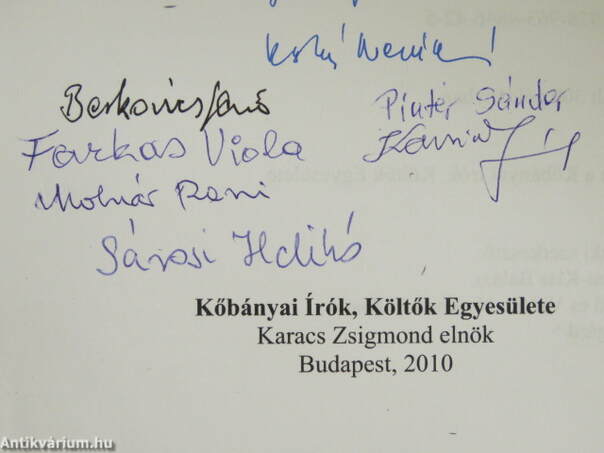 Berkovics Jenő
Pintér Sándor
Farkas Viola
Molnár Rani
Sárosi Ildikó
Kőbányai Írók, Költők Egyesülete
Karacs Zsigmond elnök
Budapest, 2010
Antikvárium.hu